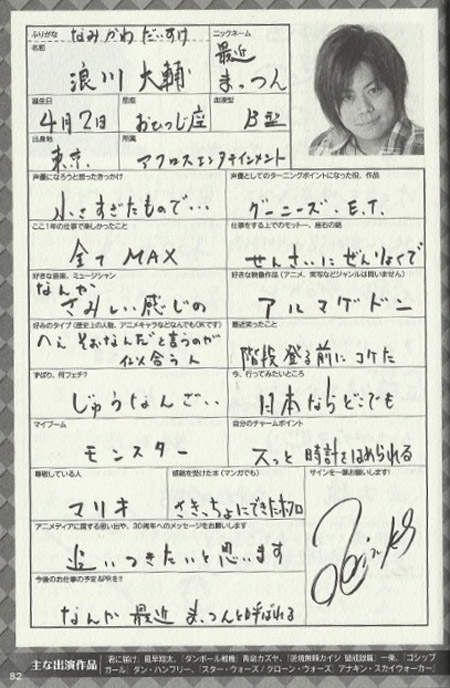 ふりがな なみかわだいすけ
ニックネーム
名前 浪川大輔
最近まっつん
誕生日 4月2日
星座 おひつじ座
血液型 B型
出身地 東京
所属 アクロスエンタテインメント
声優になろうと思ったきっかけ
小さすぎたもので...
声優としてのターニングポイントになった役、作品
グーニーズ、E.T.
ここ1年の仕事で楽しかったこと
全てMAX
仕事をする上でのモットー、座右の銘
せんさいにぜんりょくで
好きな音楽、ミュージシャン
なんか
さみしい感じの
好きな映像作品(アニメ、実写などジャンルは問いません)
アルマゲドン
好みのタイプ(歴史上の人物、アニメキャラなどなんでもOKです)
へぇ そおなんだと言うのが
似合う人
最近笑ったこと
階段登る前にコケた
ずばり、何フェチ?
じゅうなんざい
今、行ってみたいところ
日本ならどこでも
マイブーム
モンスター
自分のチャームポイント
スッと時計をはめられる
尊敬している人
マリオ
感銘を受けた本(マンガでも)
さきっちょにできたホクロ
サインを一筆お願いします!
アニメディアに関する思い出や、30周年へのメッセージをお願いします
追いつきたいと思います
今後のお仕事の予定&PRを!!
なんか 最近 まっつんと呼ばれる
主な出演作品
『君に届け』風早翔太、『ダンボール戦機』青島カズヤ、『逆境無頼カイジ 破戒録篇』一条、『ゴシップガール』ダン・ハンフリー、『スター・ウォーズ/クローン・ウォーズ』アナキン・スカイウォーカー
82